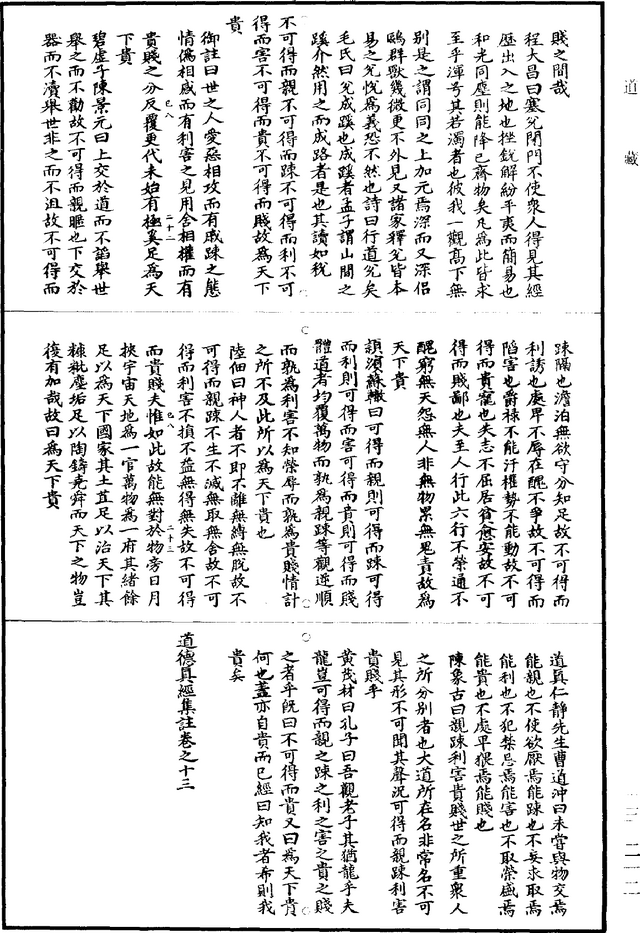 道藏
賤之間哉
程大昌曰塞兊閉門不使衆人得見其經
歷出入之地也挫銳解紛平夷而簡易也
和光同塵則能降已齋物矣凡爲此皆求
至乎渾兮其若濁者也彼我一觀高下無
別是之謂同同之上加元焉深而又深侣
鷗群獸幾微更不外見又諸家釋兊皆本
易之兊悅爲義恐不然也詩曰行道兊矣
毛氏曰兊成蹊也成蹊者孟子謂山間之
蹊介然用之而成路者是也其讀如稅
不可得而親不可得而踈不可得而利不可
得而害不可得而貴不可得而賤故爲天下
貴
御註曰世之人愛惡相攻而有戚踈之態
情偽相感而有利害之見用舍相權而有
貴賤之分反覆更代未始有極奚足爲天
下貴
碧虛子陳景元曰上交於道而不謟舉世
舉之而不勸故不可得而親暱也下交於
器而不瀆舉世非之而不沮故不可得而
踈隔也澹泊無欲守分知足故不可得而
利誘也處卑不辱在醜不爭故不可得而
陷害也爵祿不能汙權勢不能動故不可
得而貴寵也失志不屈居貧愈安故不可
得而賤鄙也夫至人行此六行不榮通不
醜窮無天怨無人非無物累無鬼責故爲
天下貴
頴濱蘇轍曰可得而親則可得而踈可得
而利則可得而害可得而貴則可得而賤
體道者均覆萬物而孰爲親踈等觀逆順
而孰爲利害不知榮辱而孰爲貴賤情計
之所不及此所以爲天下貴也
陸佃曰神人者不即不離無縛無脫故不
可得而親踈不生不滅無取無舍故不可
得而利害不損不益無得無失故不可得
而貴賤夫惟如此故能無對於物旁日月
挾宇宙天地爲一官萬物爲一府其緒餘
足以爲天下國家其土苴足以治天下其
糠粃塵垢足以陶鑄堯舜而天下之物豈
復有加哉故曰爲天下貴
道真仁靜先生曹道沖曰未嘗與物交焉
能親也不使欲厭焉能踈也不妄求取焉
能利也不犯禁忌焉能害也不取榮盛焉
能貴也不處卑猥焉能賤也
陳象古曰親踈利害貴賤世之所重衆人
之所分別者也大道所在名非常名不可
見其形不可聞其聲況可得而親踈利害
貴賤乎
黃茂材曰孔子曰吾觀老子其猶龍乎夫
龍豈可得而親之踈之利之害之貴之賤
之者乎旣曰不可得而貴又曰爲天下貴
何也蓋亦自貴而已經曰知我者希則我
貴矣
道德真經集註卷之十三